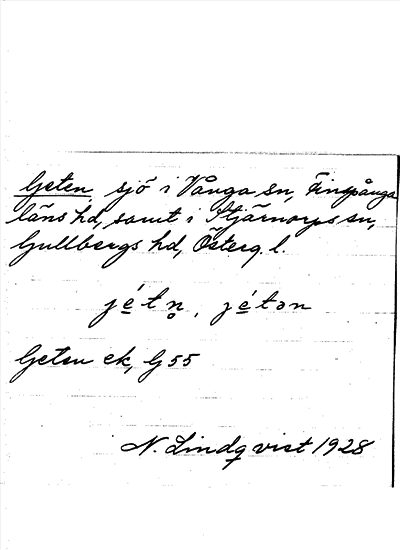 Geten, sjö i Vånga sn, Finspånga
läns hd, samt i Stjärnorps sn,
Gullbergs hd, Österg. l.
jét̥n, jétən
Geten ek, G 55
N. Lindqvist 1928